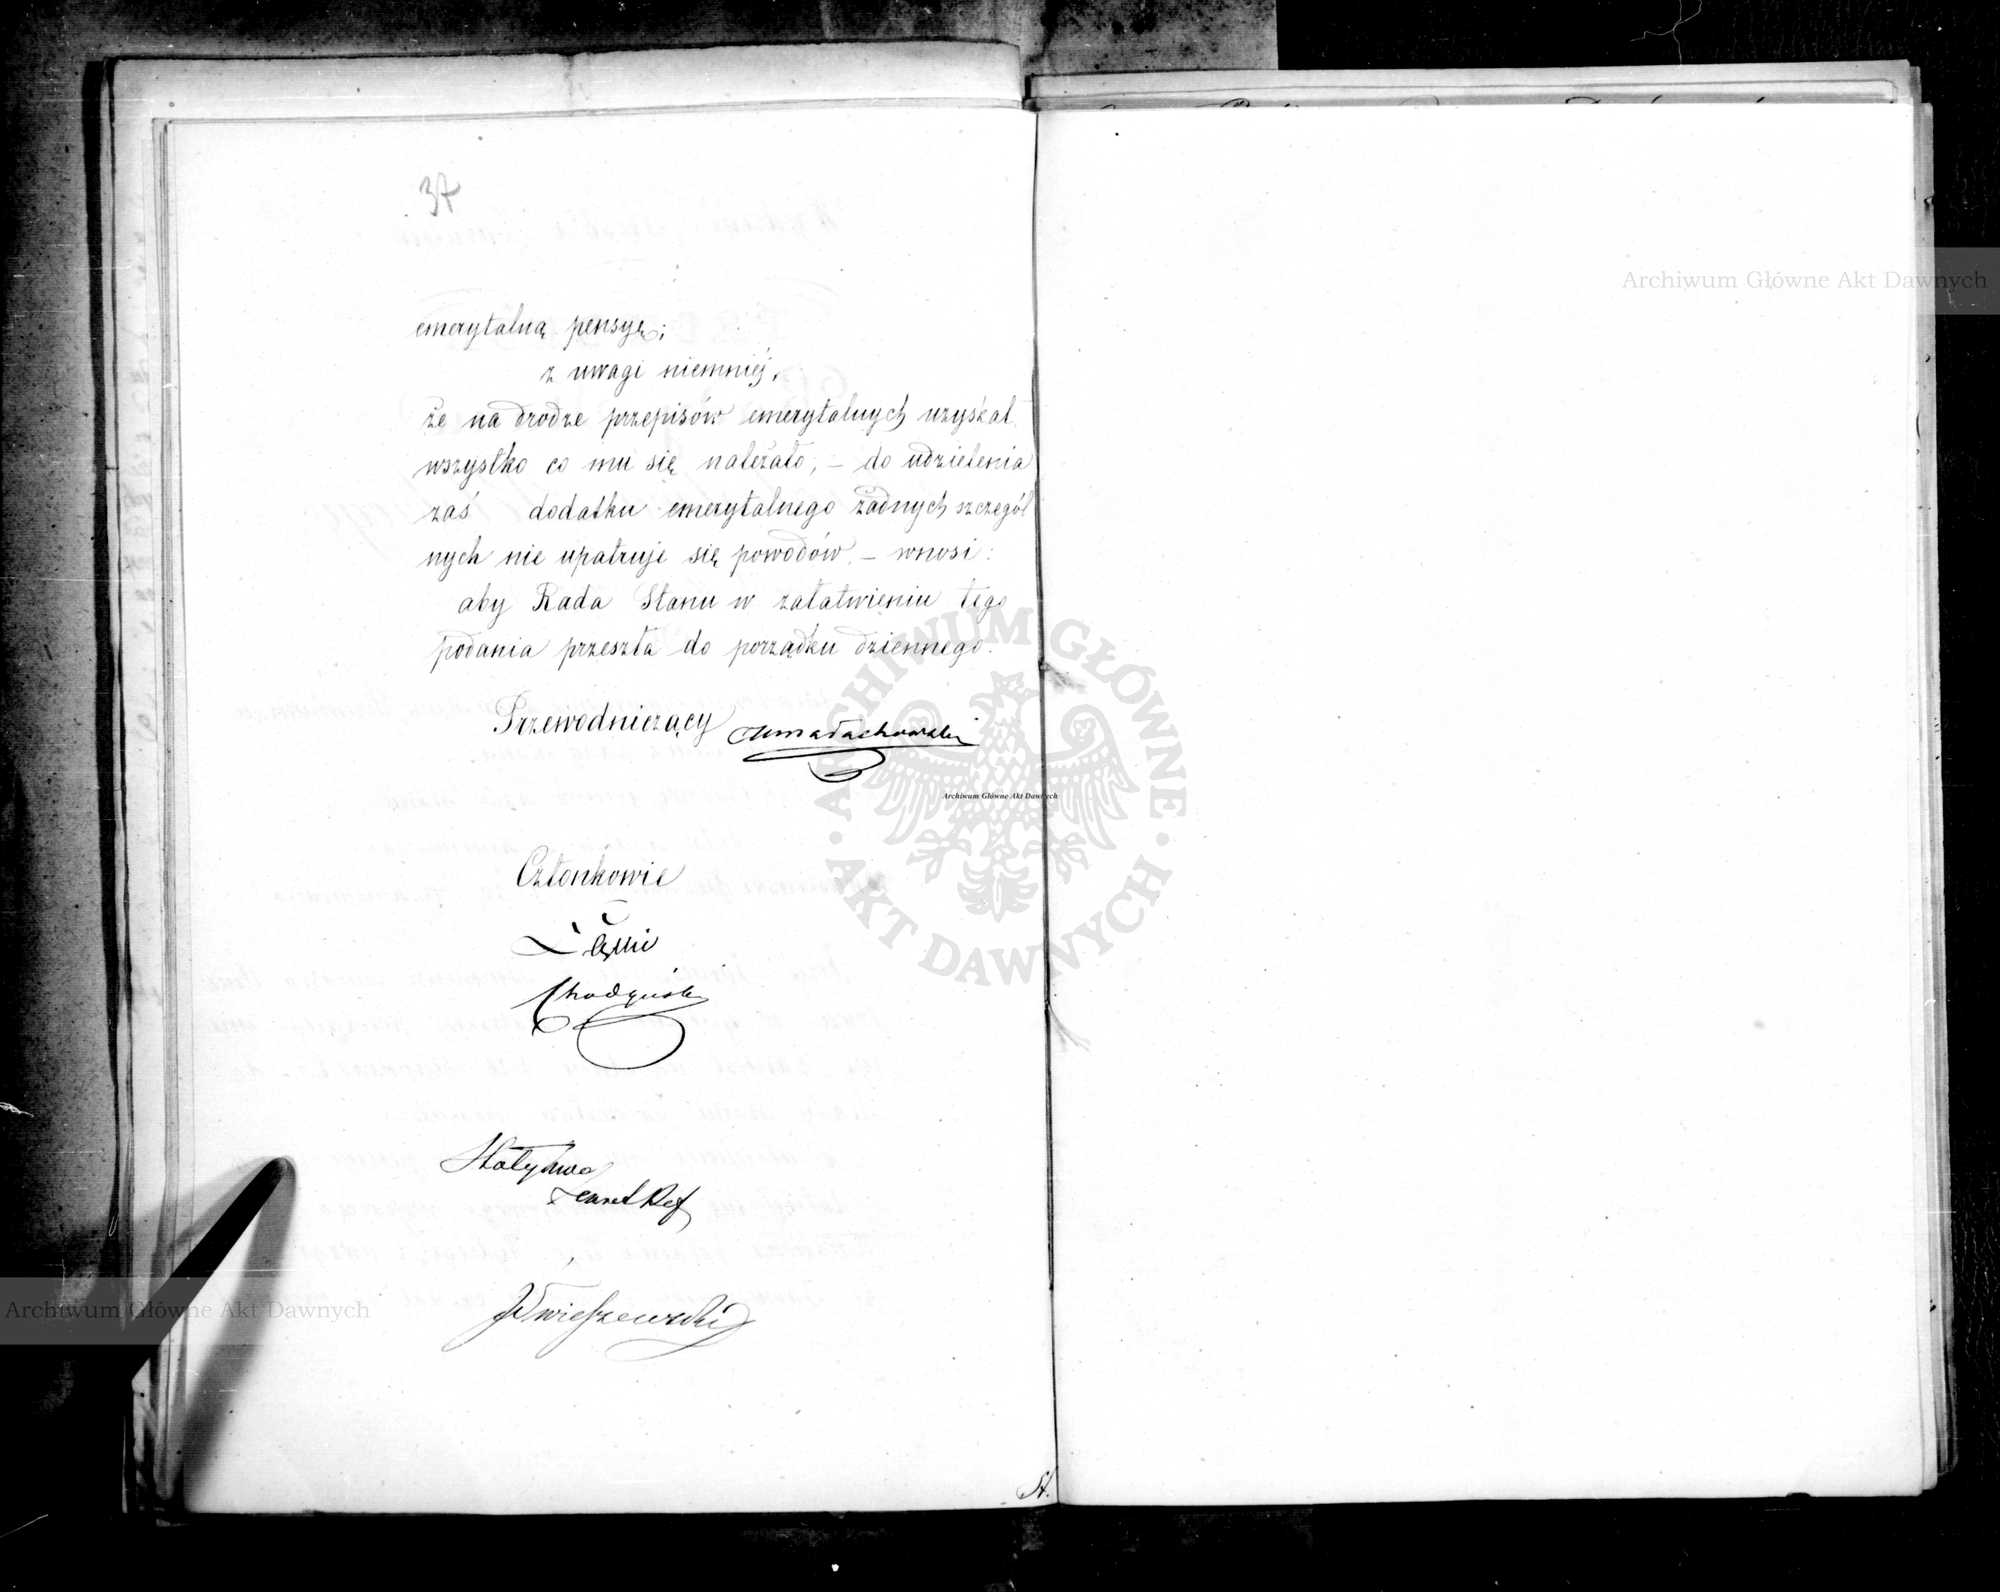 37
emerytalną pensyę;
z uwagi niemniéj,
że na drodze przepisów emerytalnych uzyskał
wszystko co mu się należało, – do udzielenia
zaś dodatku emerytalnego żadnych szczegól
nych nie upatruje się powodów. – wnosi:
aby Rada Stanu w załatwieniu tego
podania przeszła do porządku dziennego.
Przewodniczący
Członkowie
Łęski
St.
Archiwum Główne Akt Dawnych
Archiwum Główne Akt Dawnych
Archiwum Główne Akt Dawnych
ARCHIWUM GŁÓWNE AKT DAWNYCH